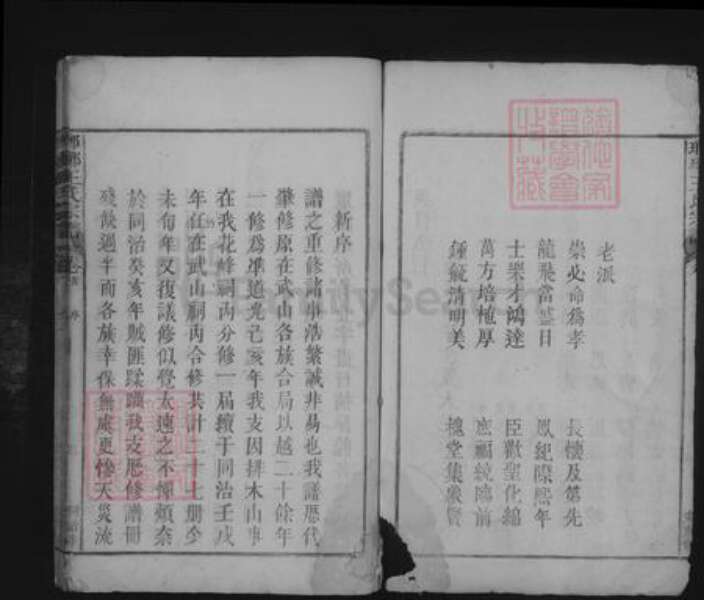 老派
崇必命爲孝 長懷及第先
龍飛當盛日 鳳紀際熙年
士樂才鴻達 臣歡聖化綿
萬方培植厚 福統前
鍾毓清明美 槐堂集衆賢
新序
譜之重修諸事浩繁誠非易也我譜歷代
肇修原在武山各族合局以越二十餘年
一修爲準道光己亥年我支因拼木山事
在我花峰祠內分修一屆續于同治壬戌
年仍在武山祠內合修共計二十七册今
未旬年又復議修似覺太速之不憚煩奈
於同治癸亥年賊匪蹂躪我支歷修譜册
殘毀過半而各族幸保無虞更慘天災流
瑯琊王氏宗譜
FamilySearch